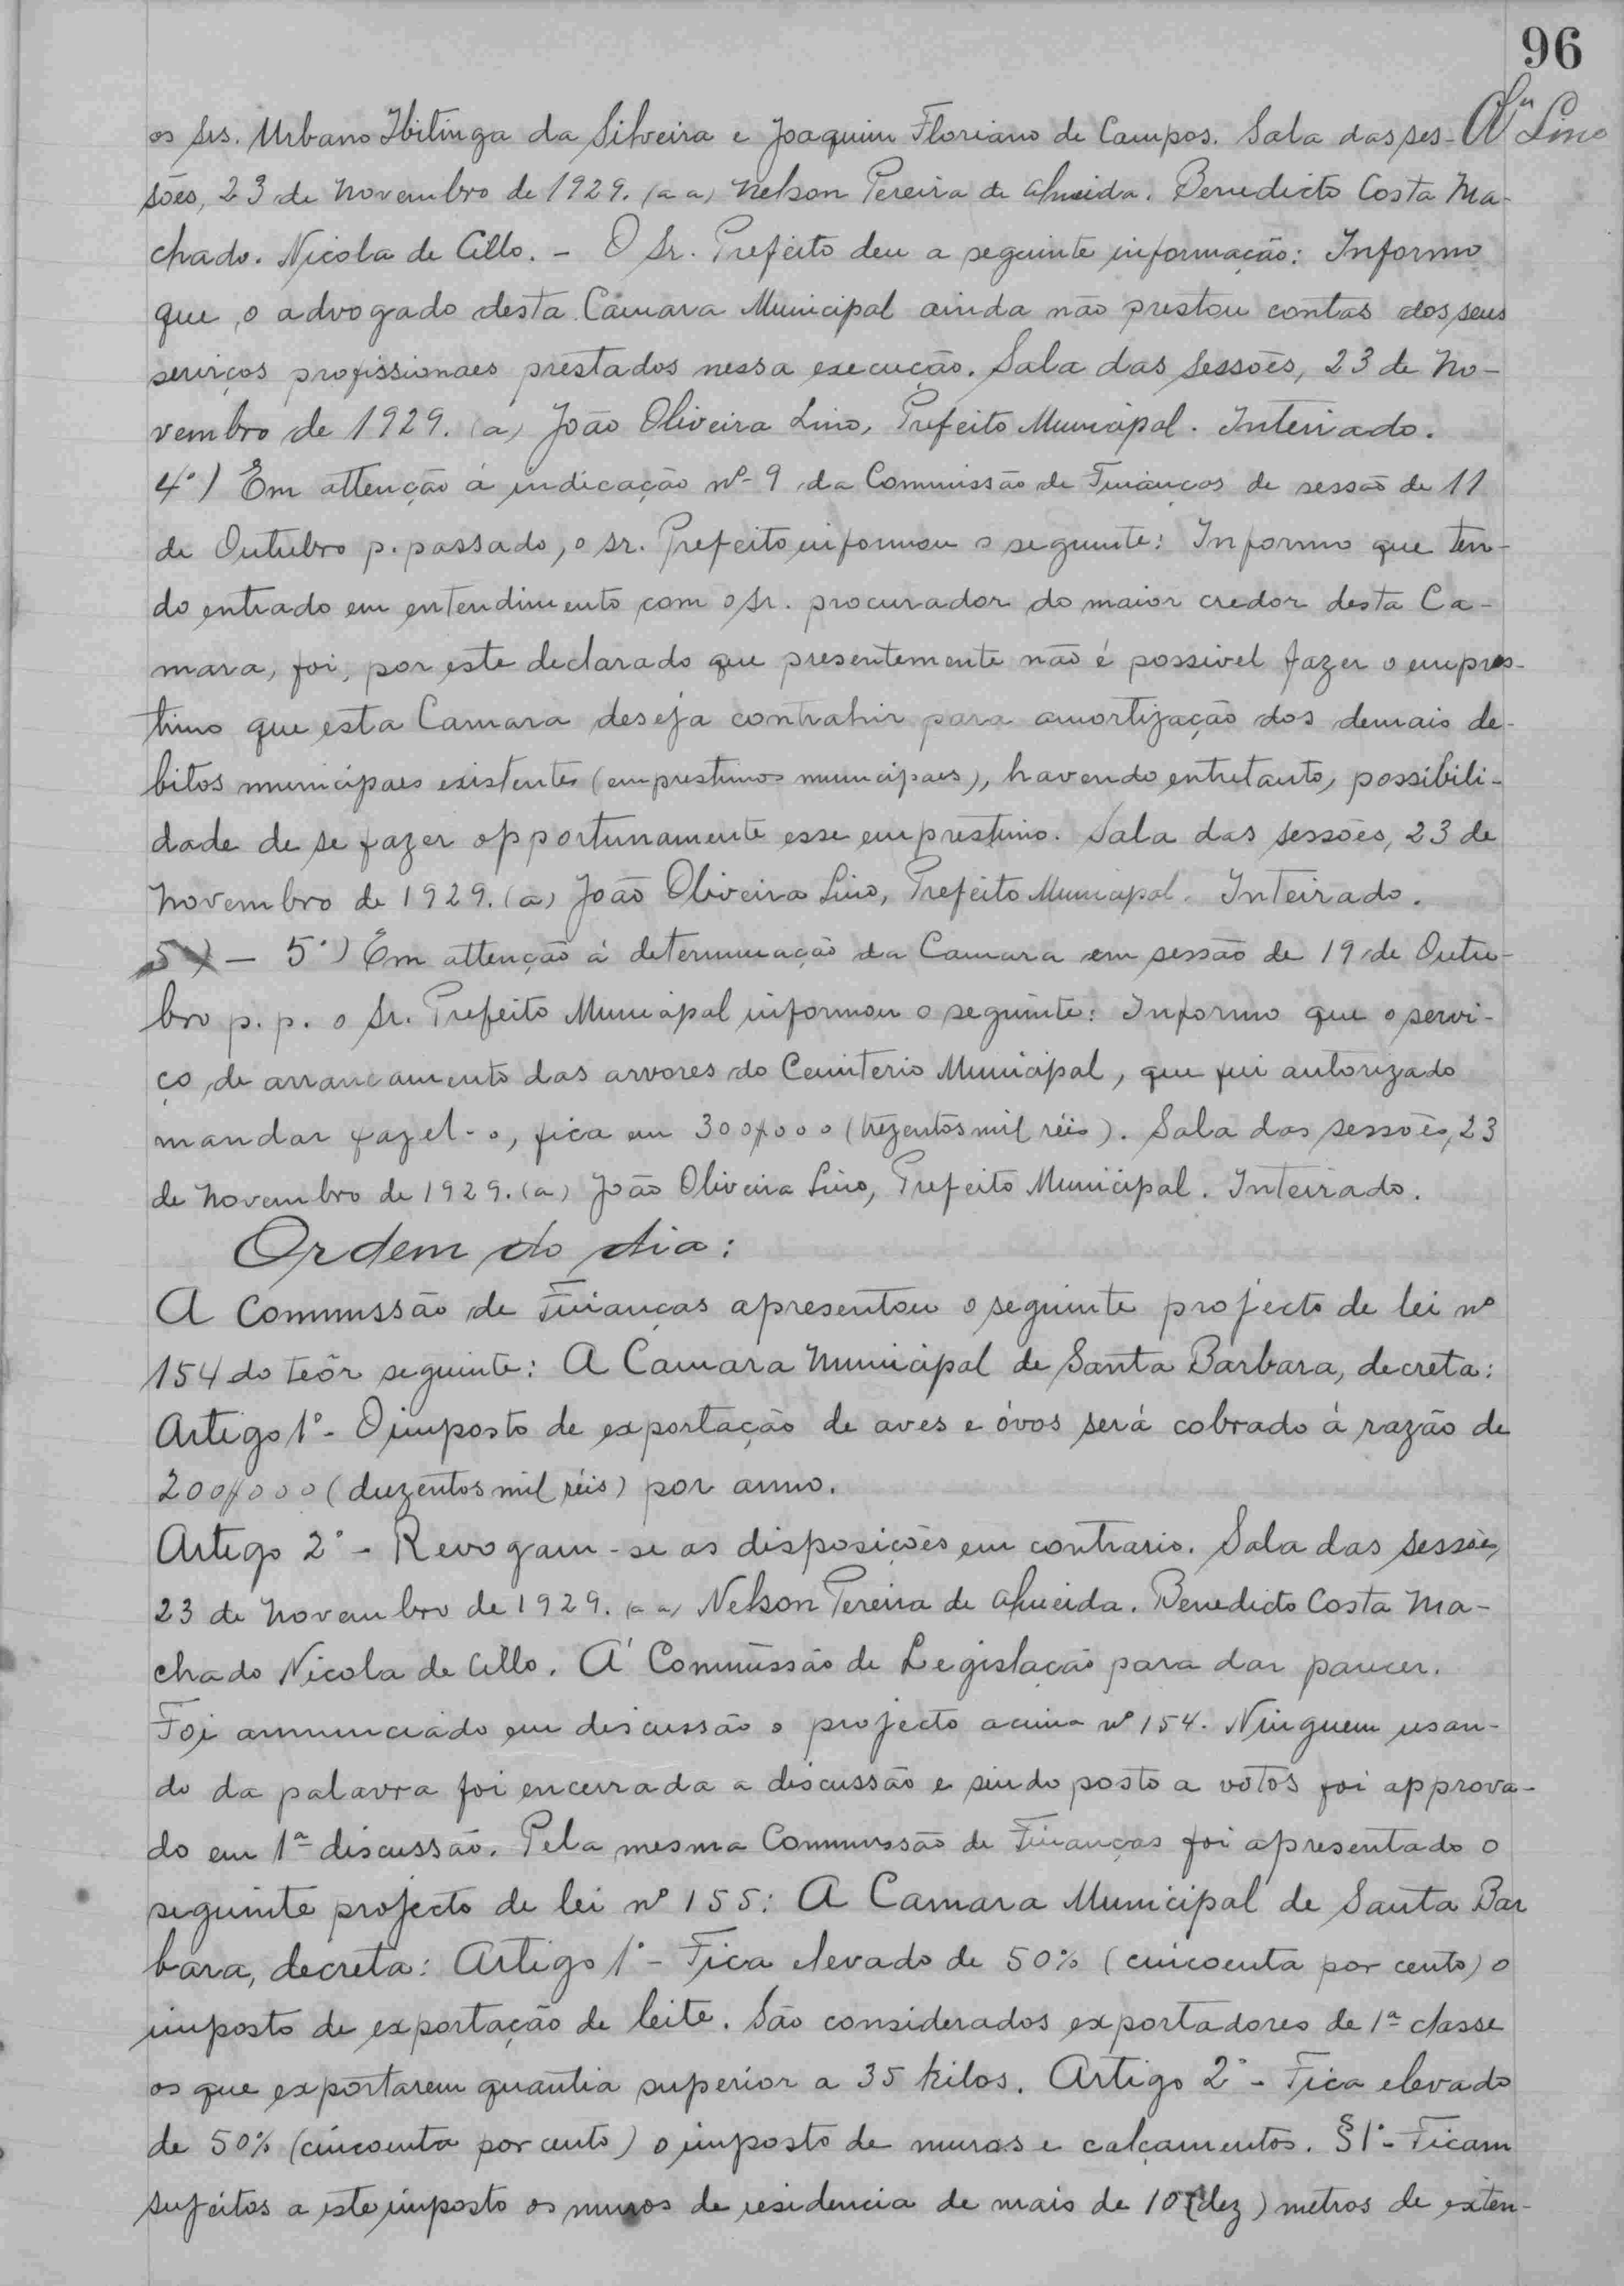 96
os srs. Urbano Ibitinga da Silveira e Joaquim Floriano de Campos. Sala das ses- Lino
sões, 23 de Novembro de 1929. (a a) Nelson Pereira de Almeida. Benedicto Costa Ma-
chado. Nicola de Cillo. - O Sr. Prefeito deu a seguinte informação: Informo
que, o advogado desta Camara Municipal ainda não prestou contas dos seus
serviços profissionaes prestados nessa execução. Sala das Sessões, 23 de No-
vembro de 1929. (a) João Oliveira Lino, Prefeito Municipal. Inteirado.
4º) Em attenção á indicação nº 9 da Commissão de Finanças de sessão de 11
de Outubro p. passado, o sr. Prefeito informou o seguinte: Informo que ten-
do entrado em entendimento com o Sr. procurador do maior credor desta Ca-
mara, foi, por este declarado que presentemente não é possivel fazer o empres-
timo que esta Camara deseja contrahir para amortização dos demais de-
bitos municipaes existentes (emprestimos municipaes), havendo entretanto, possibili-
dade de se fazer opportunamente esse emprestimo. Sala das sessões, 23 de
Novembro de 1929. (a) João Oliveira Lino, Prefeito Municipal. Inteirado.
5º) - 5º) Em attenção á determinação da Camara em sessão de 19 de Outu-
bro p. p. o Sr. Prefeito Municipal informou o seguinte: Informo que o servi-
ço de arrancamento das arvores do Cemiterio Municipal, que fui autorizado
mandar fazel-o, fica em 300$000 (trezentos mil réis). Sala das sessões, 23
de Novembro de 1929. (a) João Oliveira Lino, Prefeito Municipal. Inteirado.
Ordem do dia:
A Commissão de Finanças apresentou o seguinte projecto de lei nº
154 do teôr seguinte: A Camara Municipal de Santa Barbara, decreta:
Artigo 1º - O imposto de exportação de aves e óvos será cobrado á razão de
200$000 (duzentos mil réis) por anno.
Artigo 2º - Revogam-se as disposições em contrario. Sala das sessões,
23 de Novembro de 1929. (a a) Nelson Pereira de Almeida. Benedicto Costa Ma-
chado Nicola de Cillo. A' Commissão de Legislação para dar parecer.
Foi annunciado em discussão o projecto acima nº 154. Ninguem usan-
do da palavra foi encerrada a discussão e sendo posto a votos foi approva-
do em 1ª discussão. Pela mesma Commissão de Finanças foi apresentado o
seguinte projecto de lei nº 155: A Camara Municipal de Santa Bar
bara, decreta: Artigo 1º - Fica elevado de 50% (cincoenta por cento) o
imposto de exportação de leite. São considerados exportadores de 1ª classe
os que exportarem quantia superior a 35 kilos. Artigo 2º - Fica elevado
de 50% (cincoenta por cento) o imposto de muros e calçamentos. §1º - Ficam
sujeitos a este imposto os muros de residencia de mais de 10 (dez) metros de exten-